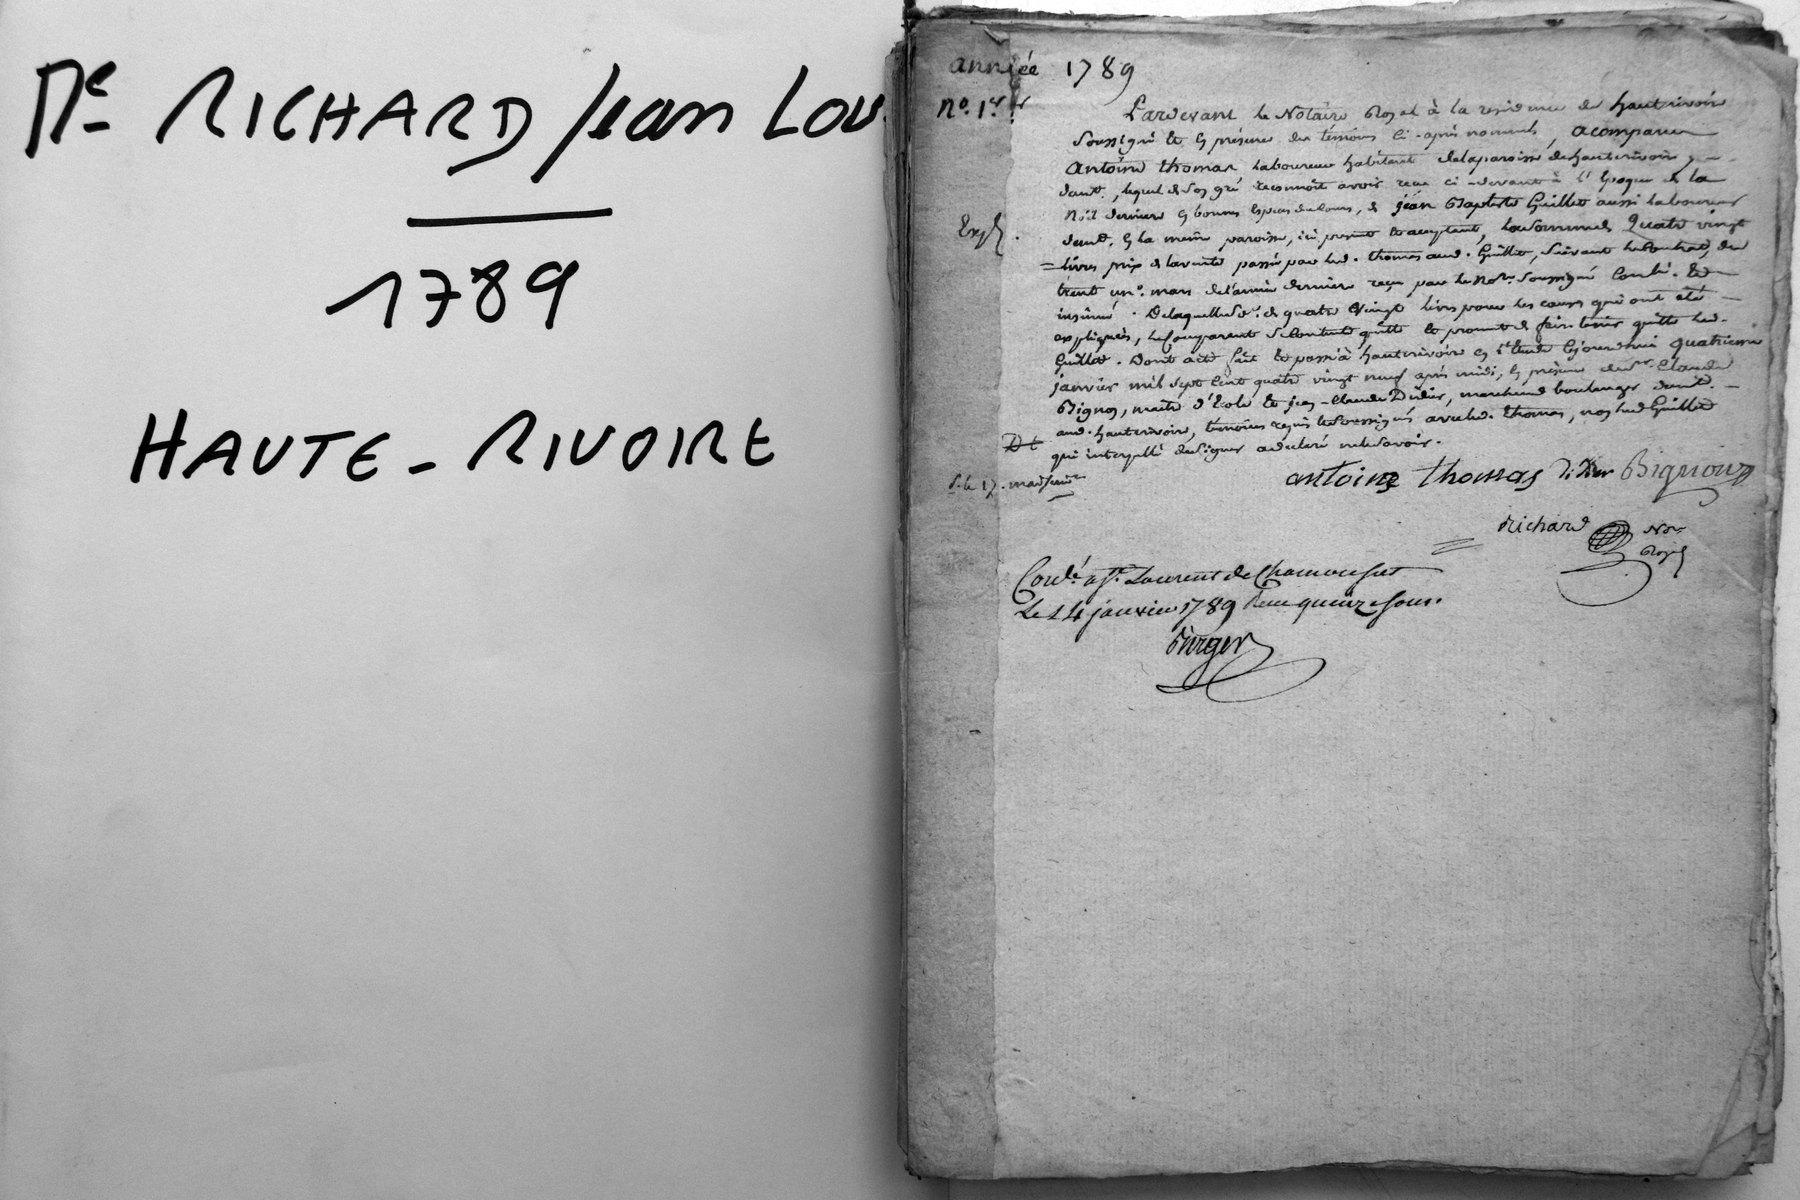 Me RICHARD Jean Lou
1789
HAUTE-RIVOIRE
année 1789
No. 1er
Pardevant le Notaire Royal à la residence de hauterivoire
Soussigné et en présence des témoins ci-après nommés, a comparu
Antoine thomas laboureur habitant de la paroisse de hauterivoire
lequel de son gré reconnoit avoir reçu ci-devant à l'Epoque de la
Noël derniere en bonnes especes de cours, de jean Baptiste Guillot aussi laboureur
demt. en la meme paroisse, ici present et acceptant, la somme de Quatre vingt
livres prix de la vente passée par led. thomas aud. Guillot, suivant le Contrat du
trente un. mars de l'année derniere reçu par le Nore. Soussigné Conlé. et
insinué. De laquelle Se. de quatre vingt livres pour les causes qui ont été
expliquées, le Comparant se contente quitte et promet de faire tenir quitte led.
Guillot. Dont acte fait et passé à hauterivoire en l'Etude Cejourdhui quatrieme
janvier mil sept cent quatre vingt neuf après midi, en présence de Sr. Claude
Bignon, maitre d'Ecole et jean-Claude Didier, marchand boulanger demt.
aud. hauterivoire, temoins requis et Soussignés avec led. thomas, non led Guillot
qui interpellé de Signer a declaré ne le Savoir.
antoine thomas Didier Bignon
Richard Nore
Royal
Conlé a St. Laurent de Chamousset
Le 14 janvier 1789 Reçu quinze sous.